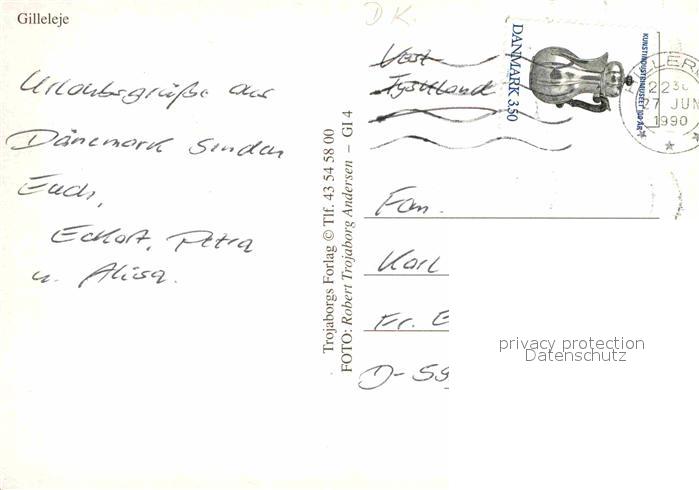 Gilleleje
DK.
Urlaubsgrüße aus
Dänemark senden
Euch,
Eckart, Petra
u. Alisa.
Trojaborgs Forlag © Tlf. 43 54 58 00
FOTO: Robert Trojaborg Andersen – GI 4
Vest
Tyskland
DANMARK 3.50
KUNSTINDUSTRIMUSEET 100 ÅR
22
27 JUN
1990
Fam.
Karl
Fr. E
D-59
privacy protection
Datenschutz